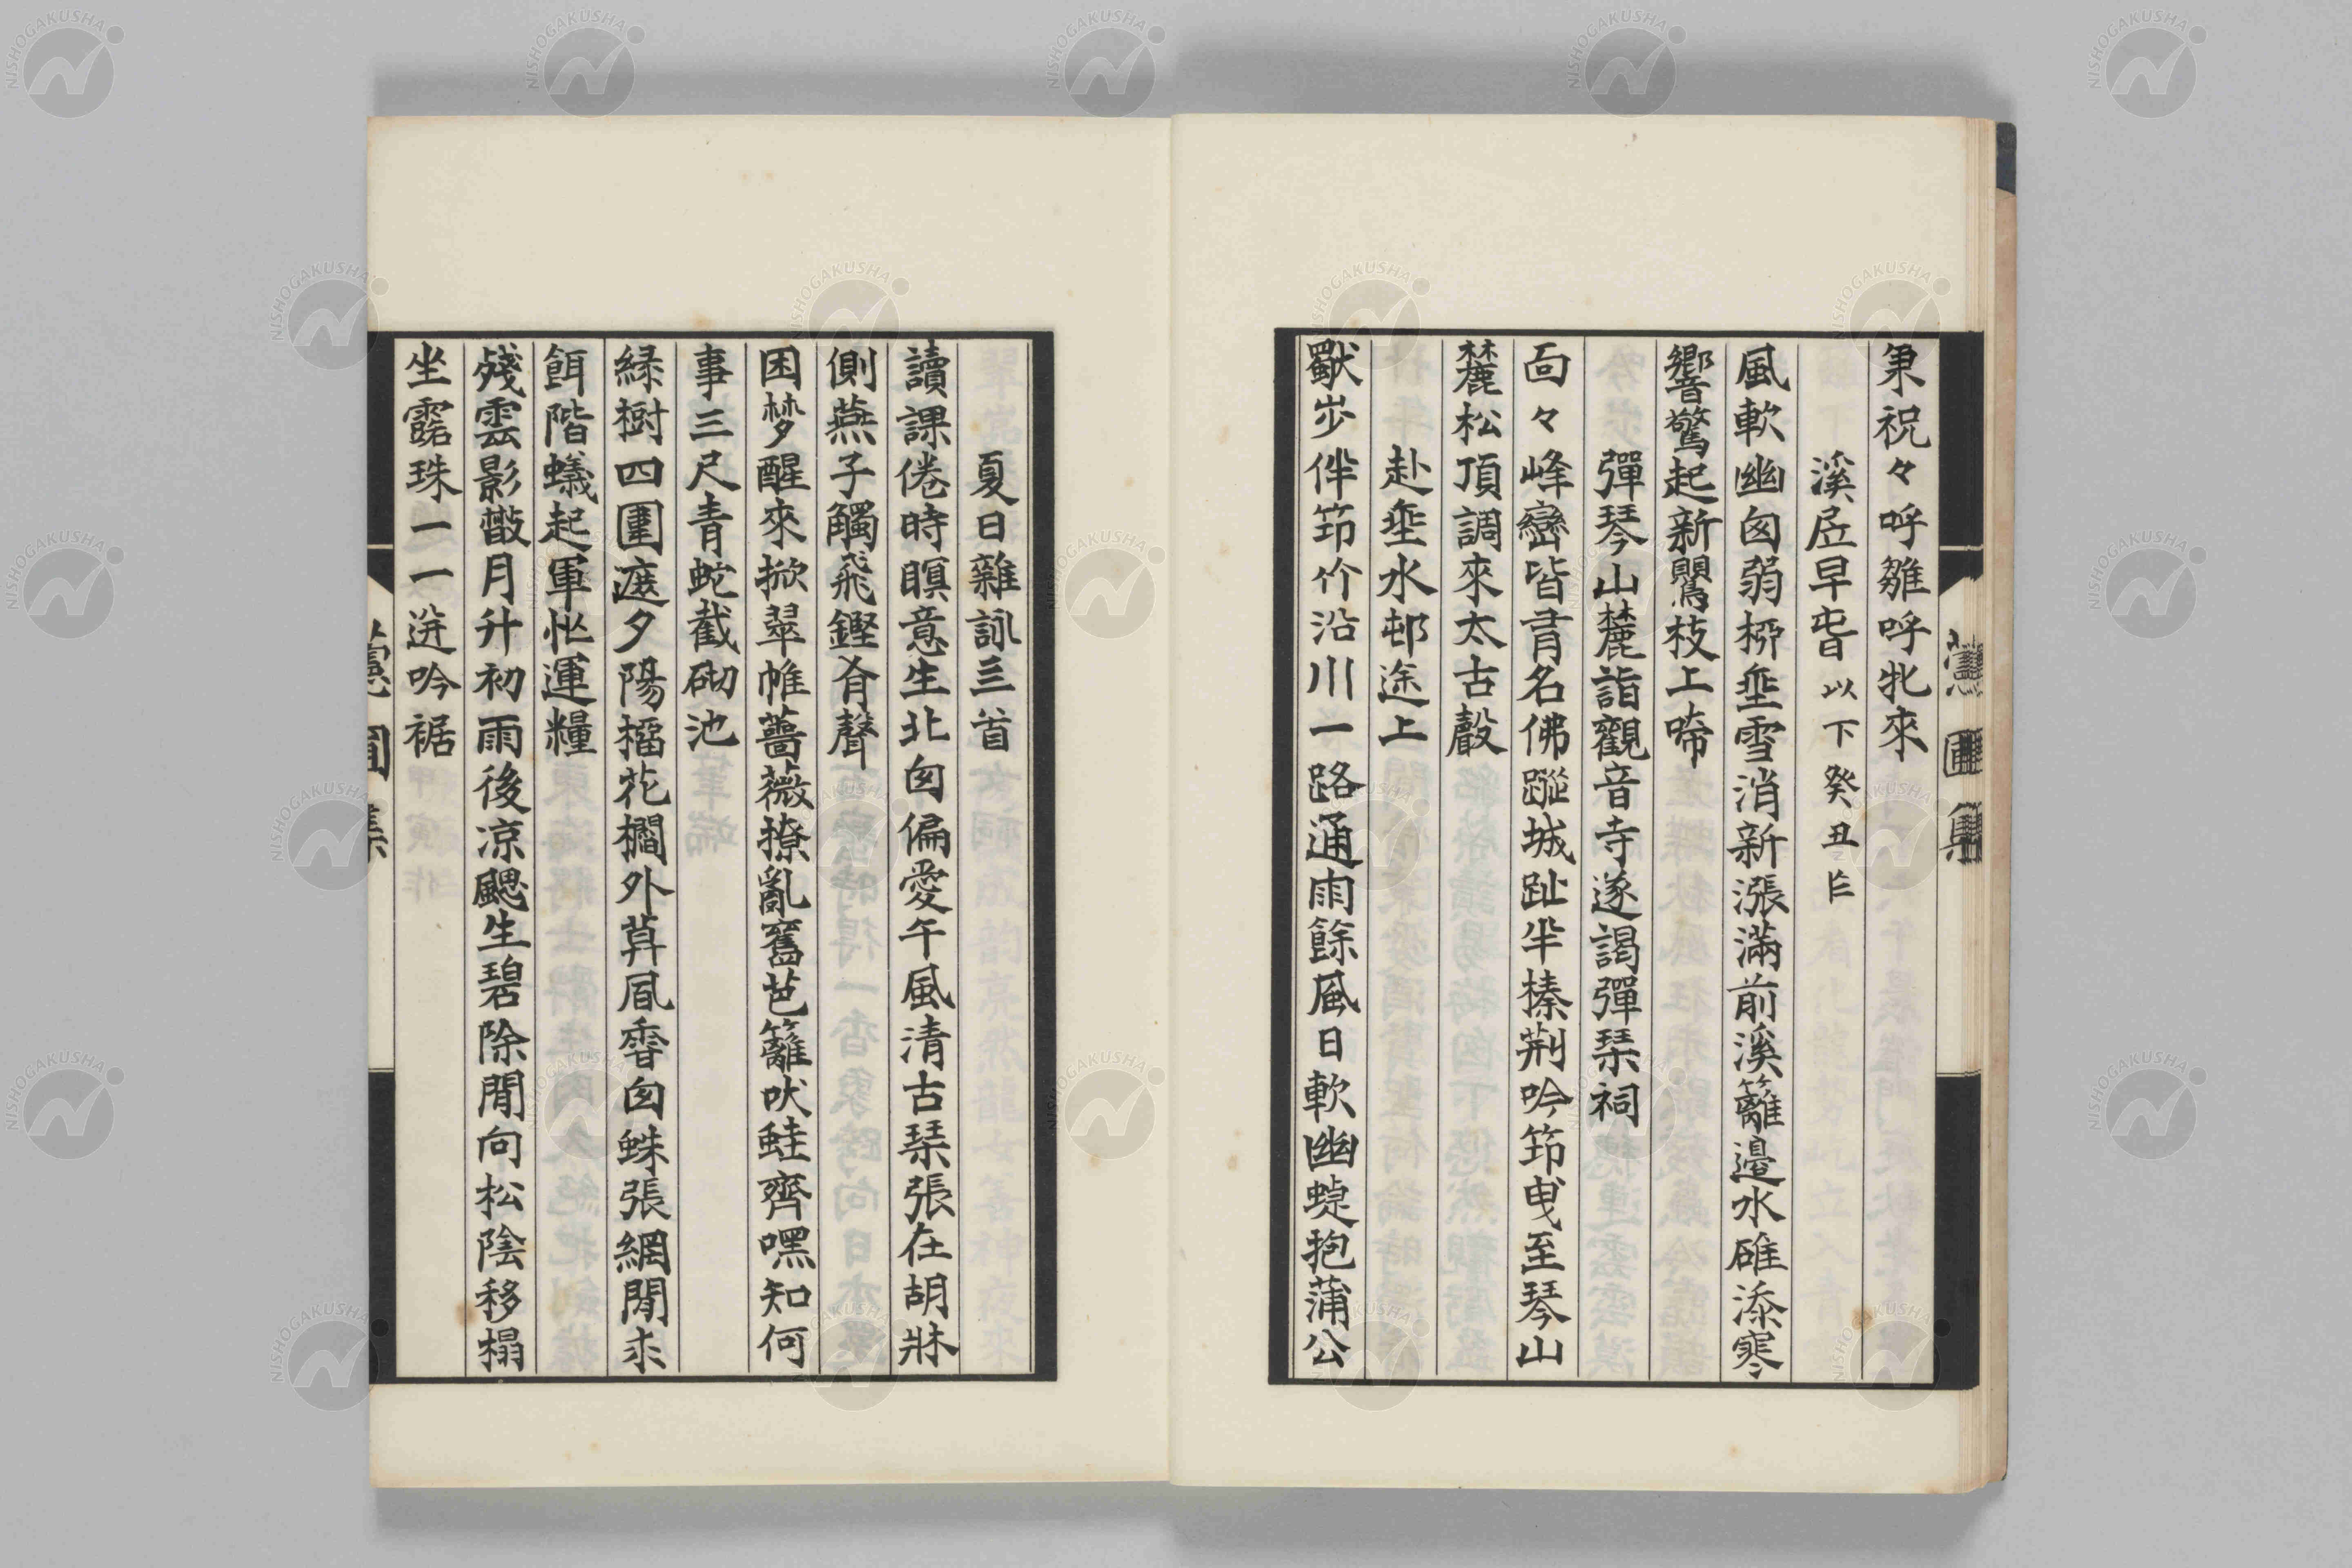 秉祝々呼雛呼牝來
溪居早春以下癸丑作
風軟幽窗弱栁垂雪消新漲滿前溪籬邊水碓添寒
響驚起新鸎枝上啼
彈琴山麓詣觀音寺遂謁彈琹祠
面々峰巒皆有名佛蹤城趾半榛荆吟筇曳至琴山
麓松頂調來太古聲
赴垂水邨途上
獸步伴筇竹沿川一路通雨餘風日軟幽蜨抱蒲公
夏日雜詠三首
讀課倦時瞑意生北窗偏愛午風清古琹張在胡牀
側燕子觸飛鏗有聲
困梦醒來掀翠帷薔薇撩亂舊芭籬吠蛙齊嘿知何
事三尺青蛇截砌池
緑樹四圍遮夕陽榴花櫊外葬風香窗蛛張網閒求
餌階蟻起軍忙運糧
殘雲影㪚月升初雨後凉颸生碧除閒向松陰移榻
坐露珠一一迸吟裾
薏圃集
NISHOGAKUSHA